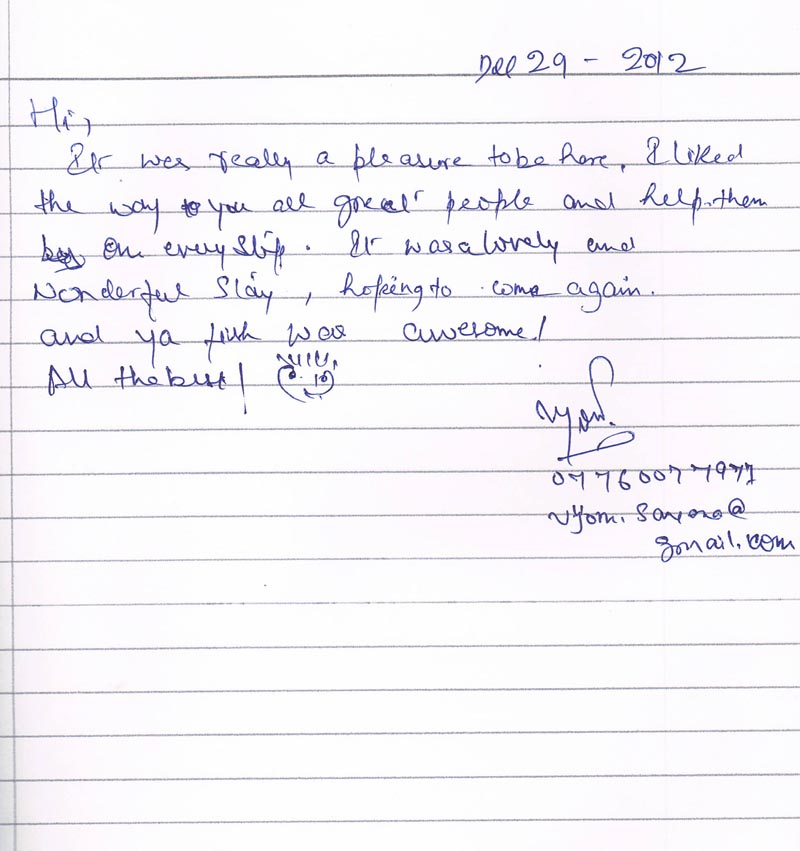 Dec 29 - 2012
Hi,
It was really a pleasure to be here. I liked
the way you all great people and help them
on every step. It was a lovely and
wonderful stay, hoping to come again.
and ya fish was awesome!
All the best!
Vyom.
07760077971
vyom.saxena@
gmail.com